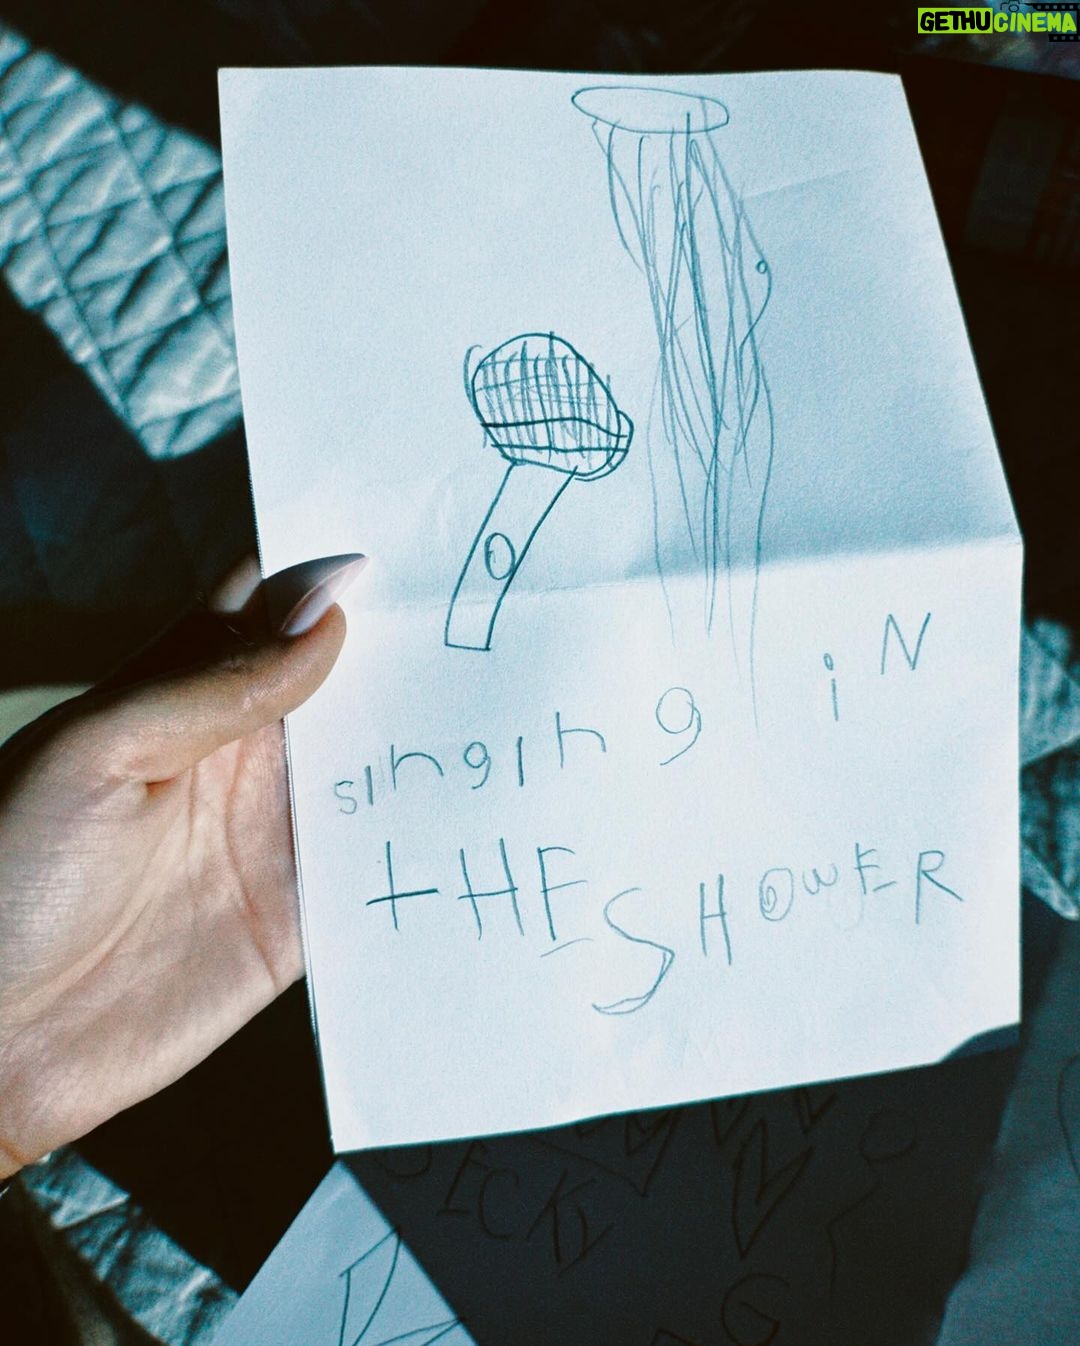 GETHUCINEMA
singing iN
tHE SHOWER